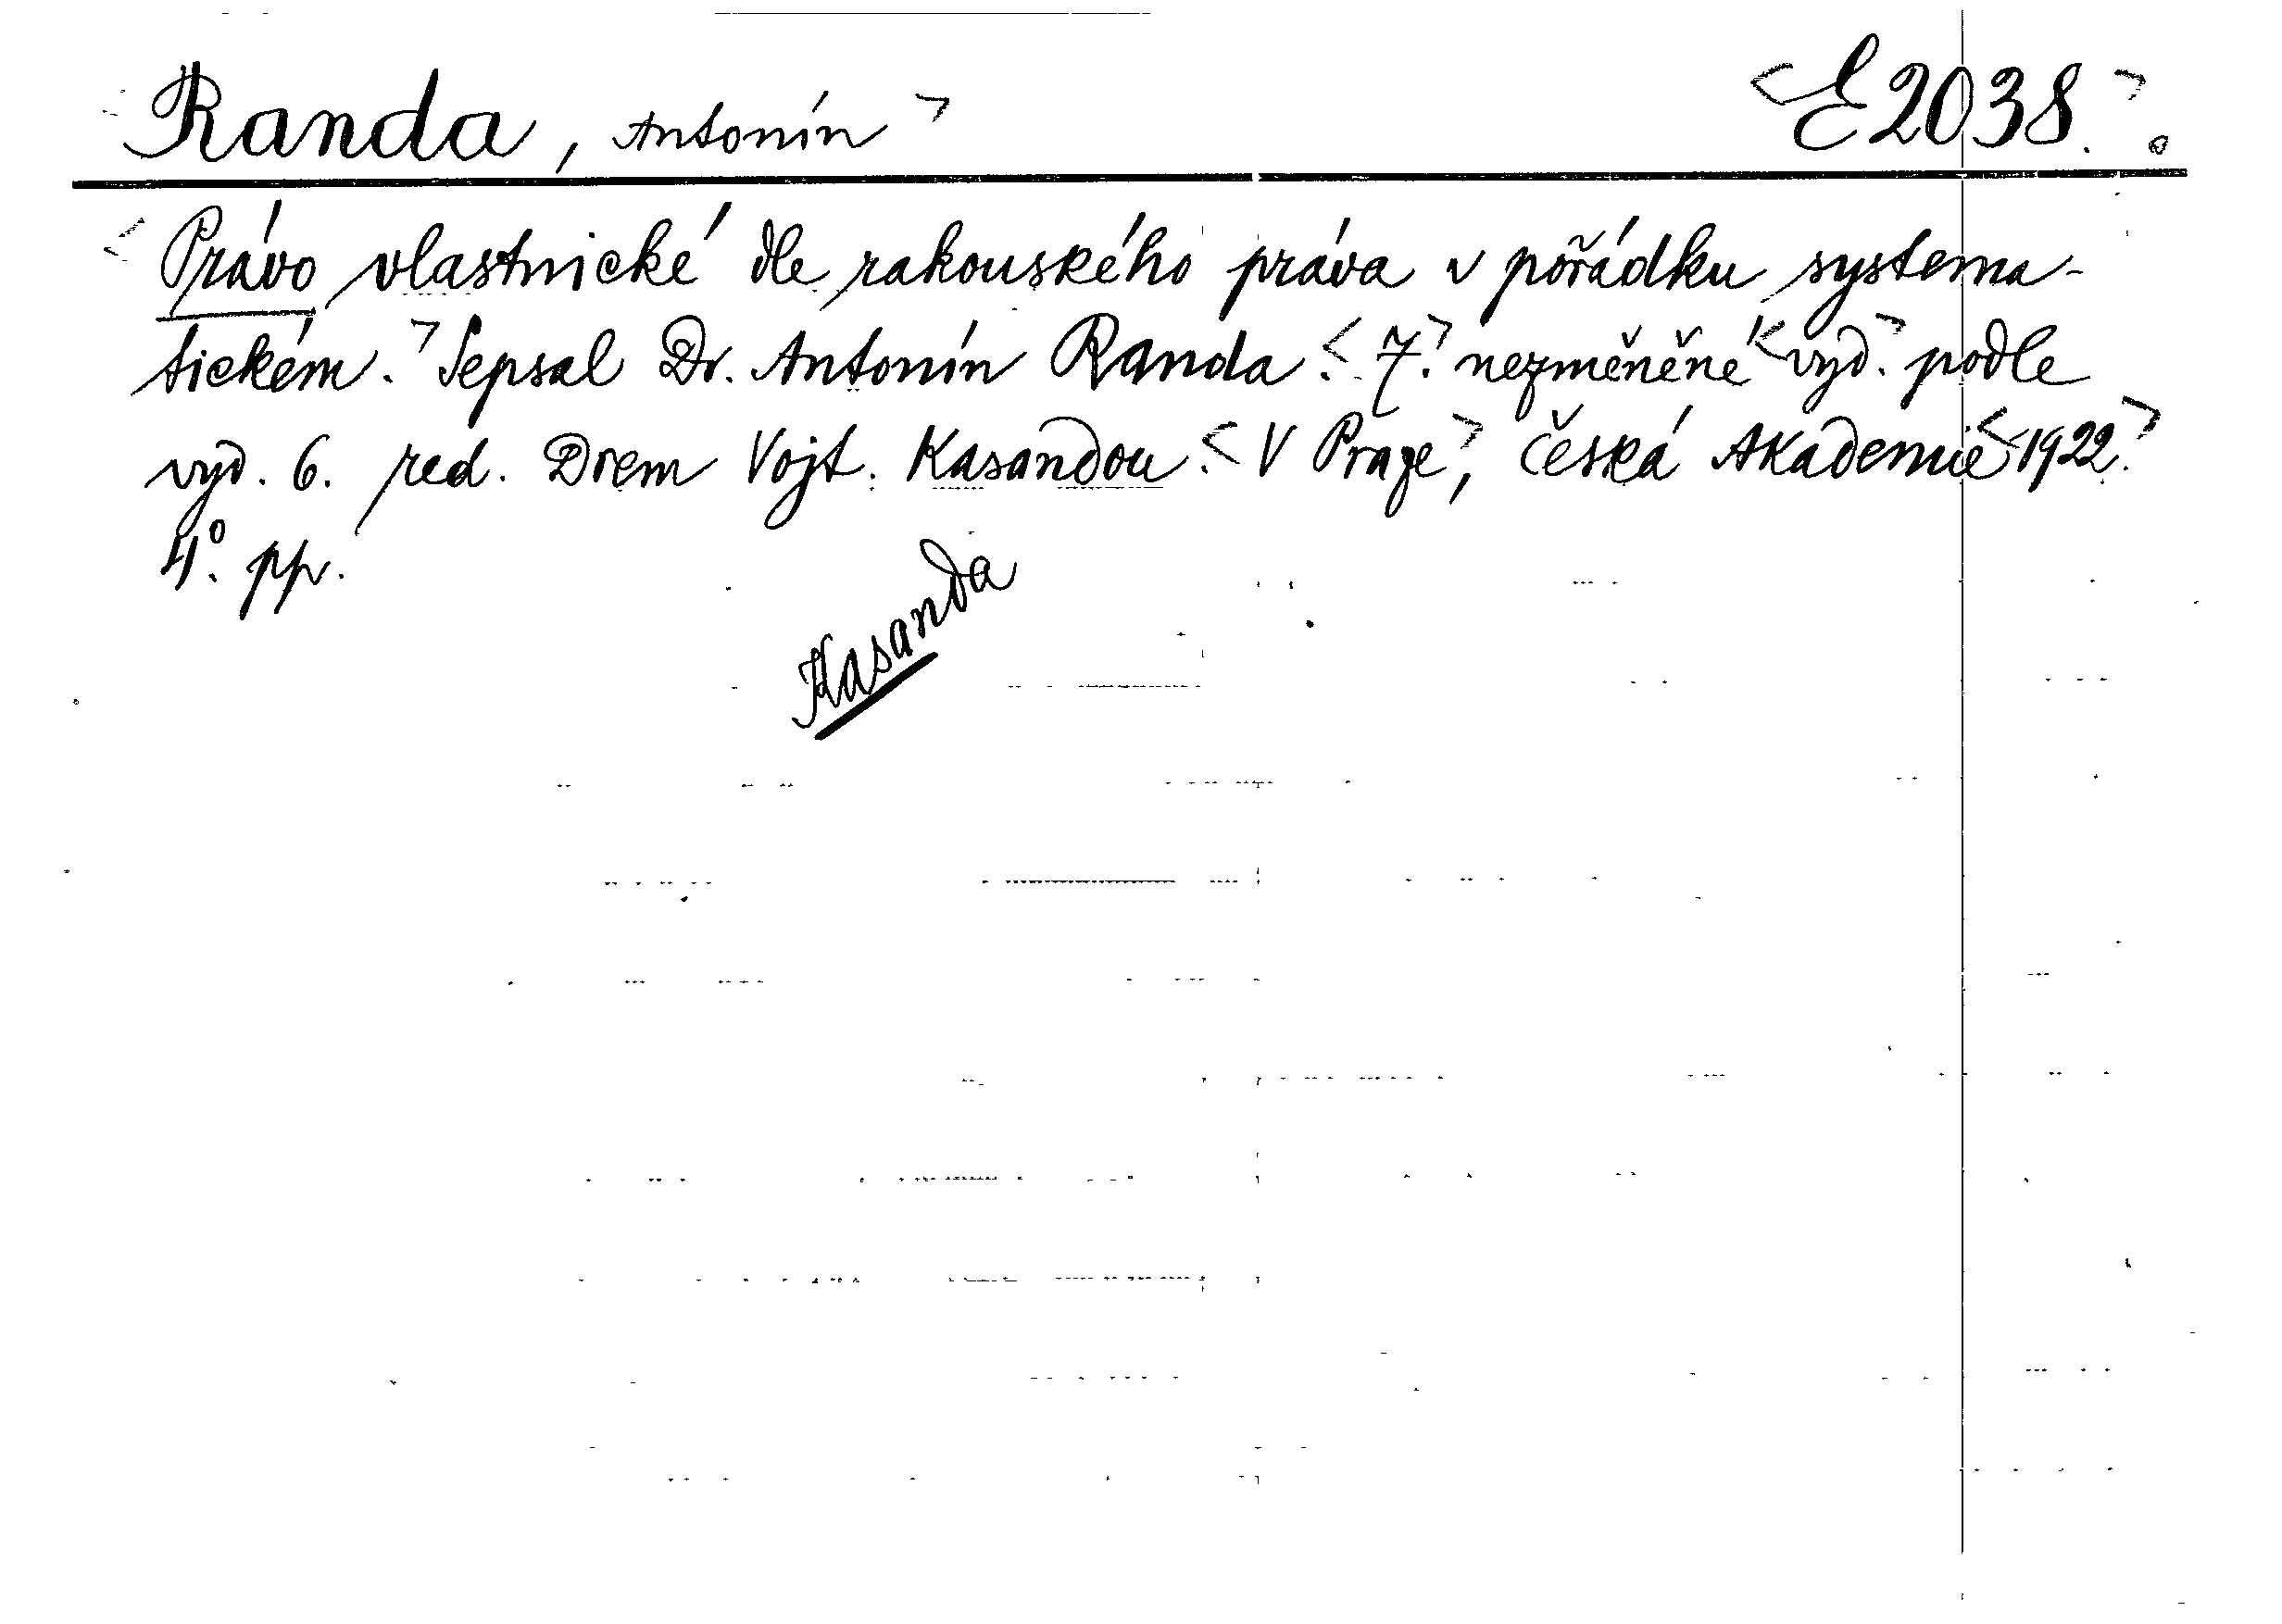 Randa, Antonín> <E2038.>
<Právo vlastnické dle rakouského práva v pořádku systema-
tickém.> Sepsal Dr. Antonín Randa.<7.> nezměněné <vyd.> podle
vyd. 6. red. Drem Vojt. Kasandou.<V Praze>, Česká Akademie <1922.>
4°. pp.
Kasanda